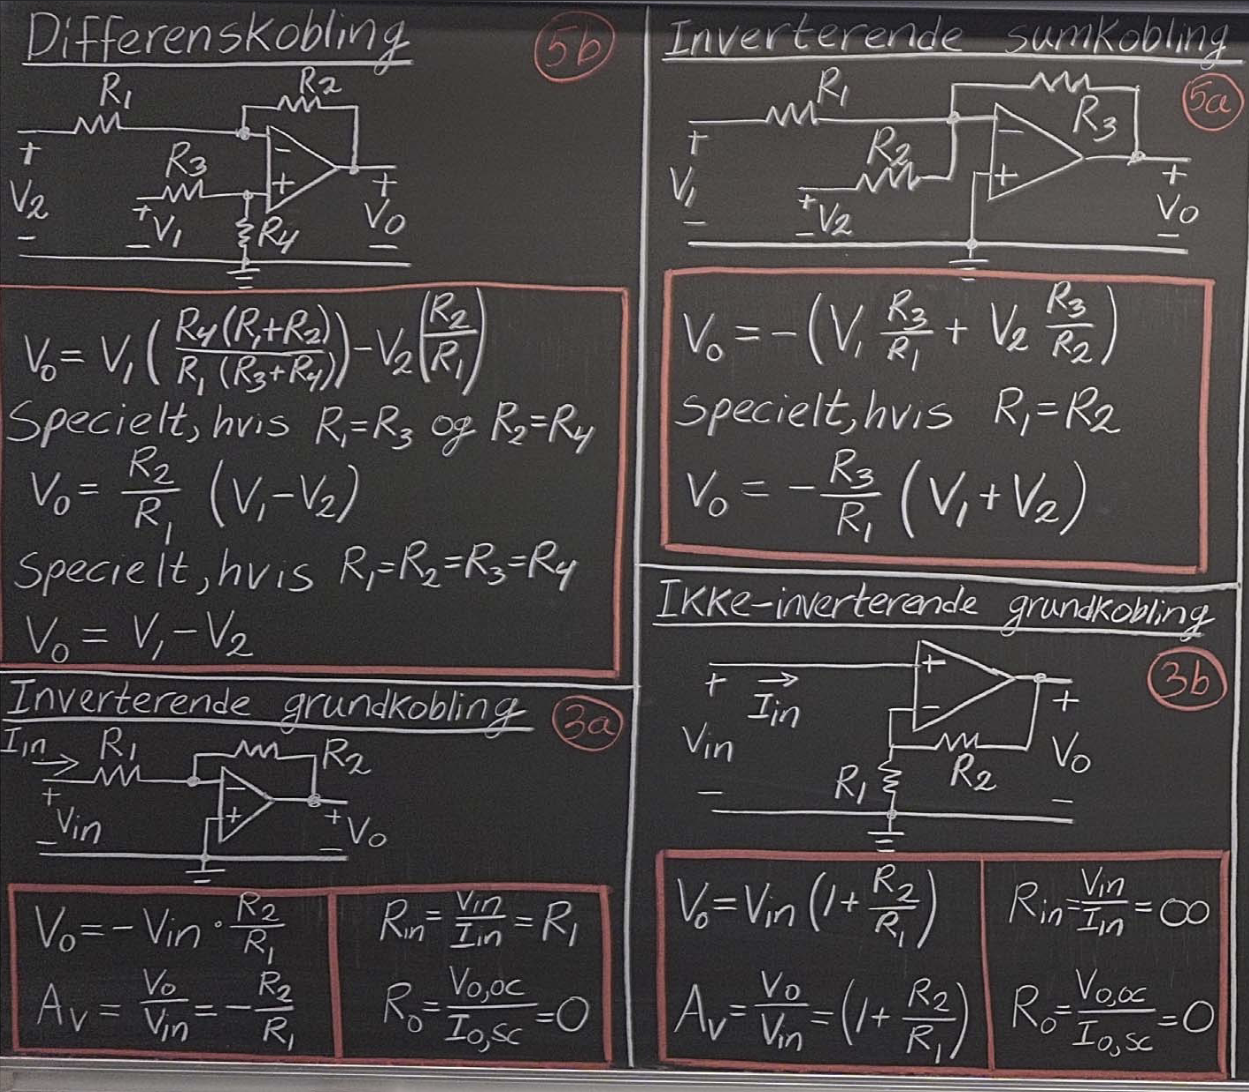 Differenskobling 5b
R₁ R₂
R₃
+ V₂ - + V₁ - R₄ - + + V₀ -
V₀ = V₁ (R₄(R₁+R₂) / R₁(R₃+R₄)) - V₂ (R₂/R₁)
Specielt, hvis R₁=R₃ og R₂=R₄
V₀ = R₂/R₁ (V₁-V₂)
Specielt, hvis R₁=R₂=R₃=R₄
V₀ = V₁-V₂
Inverterende grundkobling 3a
Iin R₁ R₂
+ Vin - - + + V₀ -
V₀ = -Vin · R₂/R₁
Av = V₀/Vin = -R₂/R₁
Rin = Vin/Iin = R₁
R₀ = V₀,oc/I₀,sc = 0
Inverterende sumkobling 5a
R₁ R₃
R₂
+ V₁ - + V₂ - - + + V₀ -
V₀ = -(V₁ R₃/R₁ + V₂ R₃/R₂)
Specielt, hvis R₁=R₂
V₀ = -R₃/R₁ (V₁+V₂)
Ikke-inverterende grundkobling 3b
+ Vin - Iin + - + V₀ -
R₁ R₂
V₀ = Vin (1+ R₂/R₁)
Av = V₀/Vin = (1+ R₂/R₁)
Rin = Vin/Iin = ∞
R₀ = V₀,oc/I₀,sc = 0